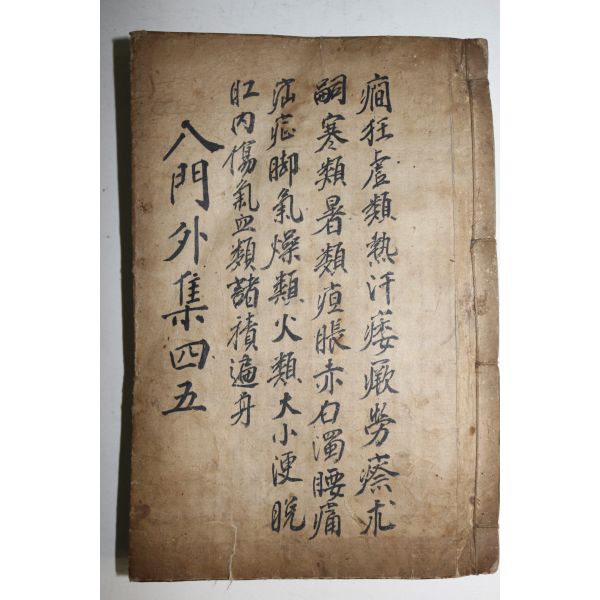 癎狂虗類熱汗痿厥勞瘵求
嗣寒類暑類疸脹赤白濁腰痛
疝㽱脚氣燥類火類大小便脫
肛內傷氣血類諸積遍身
八門外集四五